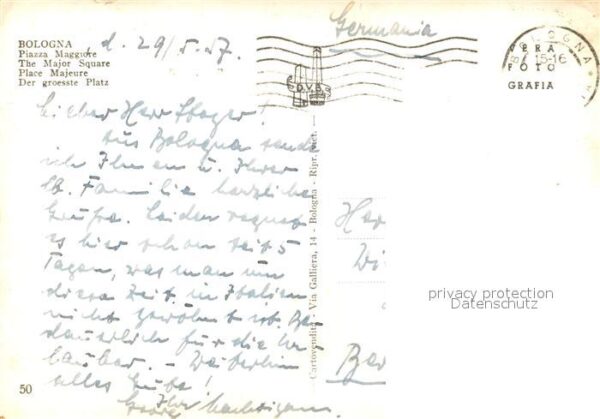 BOLOGNA
Piazza Maggiore
The Major Square
Place Majeure
Der groesste Platz
d. 29/5.57.
Germania
D.V.B.
BOLOGNA
15-16
ERA
FOTO
GRAFIA
Lieber Herr
Aus Bologna sende
ich Ihnen u. Ihrer
lb. Familie herzliche
Grüße. Leider regnet
es hier schon seit 5
Tagen, was man um
diese Zeit in Italien
nicht gewöhnt ist. Be-
dauerlich für die Ur-
lauber. – Weiterhin
alles Gute!
Ihr
Cartovendita - Via Galliera, 14 - Bologna - Ripr. Viet. -
Her
privacy protection
Datenschutz
50